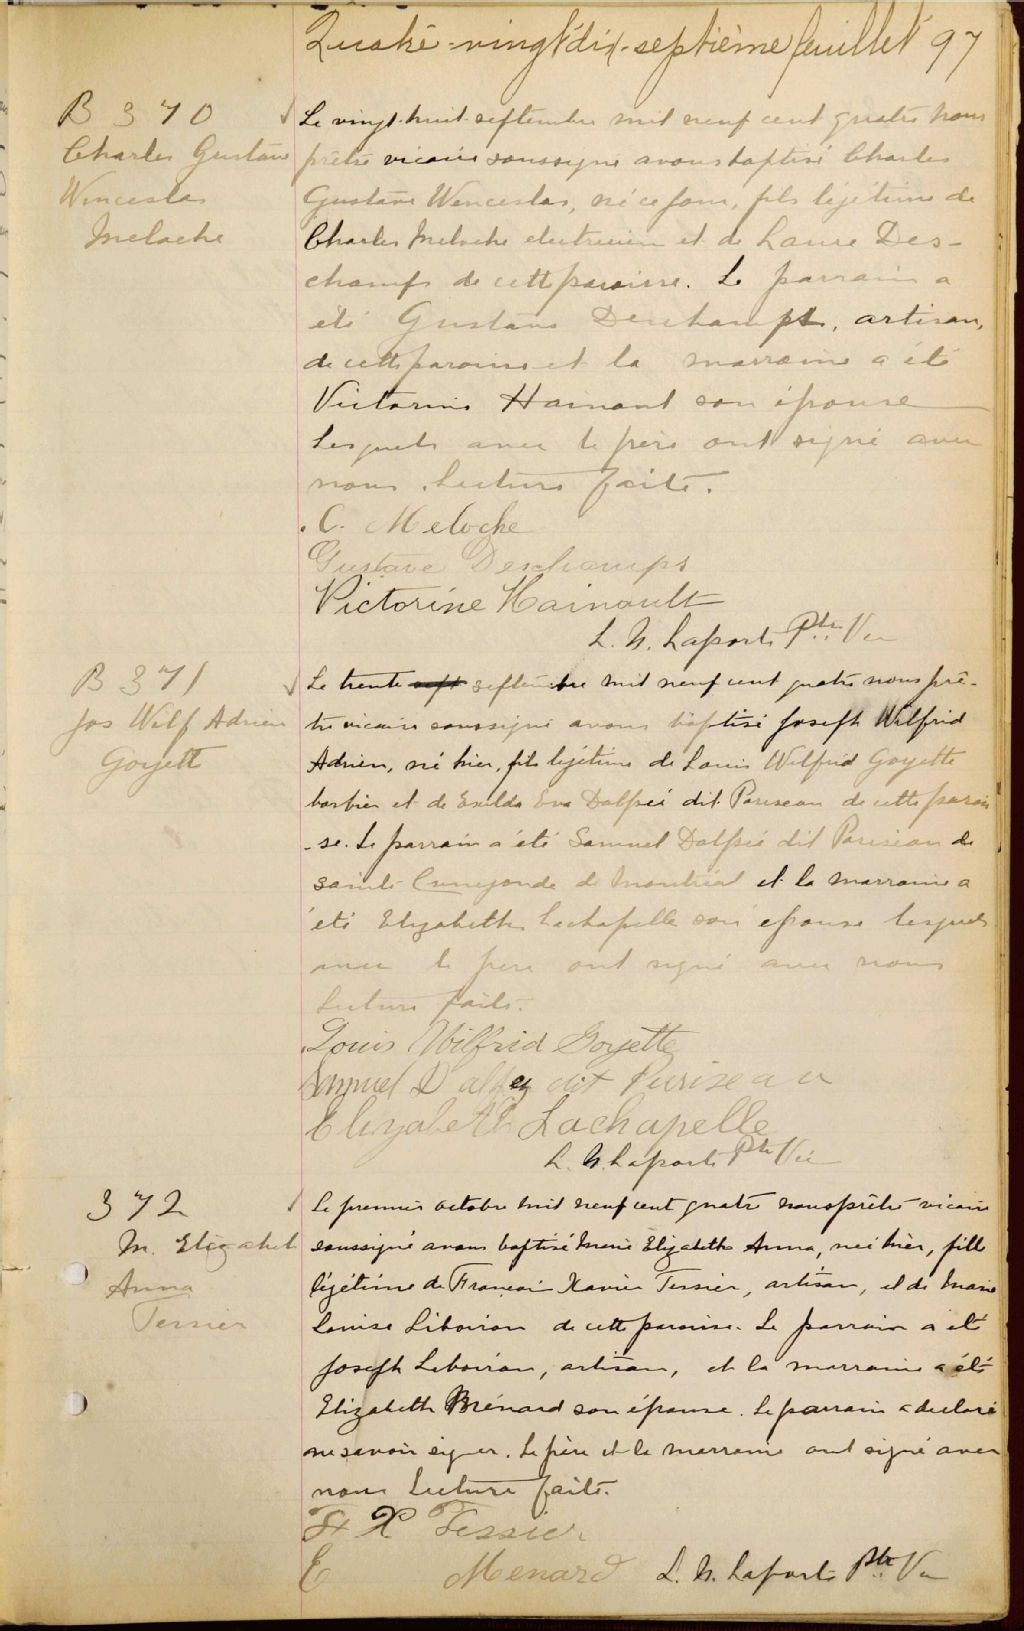 Quatre-vingt dix-septième feuillet 97
B 370
Charles Gustave
Wenceslas
Meloche
Le vingt-huit septembre mil neuf cent quatre nous
prêtre vicaire soussigné avons baptisé Charles
Gustave Wenceslas, né ce jour, fils légitime de
Charles Meloche electricien et de Laure Des-
champs de cette paroisse. Le parrain a
été Gustave Deschamps, artisan,
de cette paroisse et la marraine a été
Victorine Hainault son épouse
lesquels avec le père ont signé avec
nous. Lecture faite.
C. Meloche
Gustave Deschamps
Victorine Hainault
L. N. Laporte Ptre Vic
B 371
Jos Wilf Adrien
Goyette
Le trente sept septembre mil neuf cent quatre nous prê-
tre vicaire soussigné avons baptisé Joseph Wilfrid
Adrien, né hier, fils légitime de Louis Wilfrid Goyette
barbier et de Exilda Eva Dalpéé dit Pariseau de cette parois
-se. Le parrain a été Samuel Dalpée dit Pariseau de
sainte Cunégonde de Montréal et la marraine a
été Elizabeth Lachapelle son épouse lesquels
avec le père ont signé avec nous
Lecture faite.
Louis Wilfrid Goyette
Samuel Dalpey dit Pariseau
Elizabeth Lachapelle
L. N. Laporte Ptre Vic
372
M. Elizabeth
Anna
Tessier
Le premier octobre mil neuf cent quatre nous prêtre vicaire
soussigné avons baptisé Marie Elizabeth Anna, née hier, fille
légitime de François Xavier Tessier, artisan, et de Marie
Louise Liboiron de cette paroisse. Le parrain a été
Joseph Leboiron, artisan, et la marraine a été
Elizabeth Ménard son épouse. Le parrain a déclaré
ne savoir signer. Le père et la marraine ont signé avec
nous Lecture faite.
F X Tessier
E Menard L. N. Laporte Ptre Vic